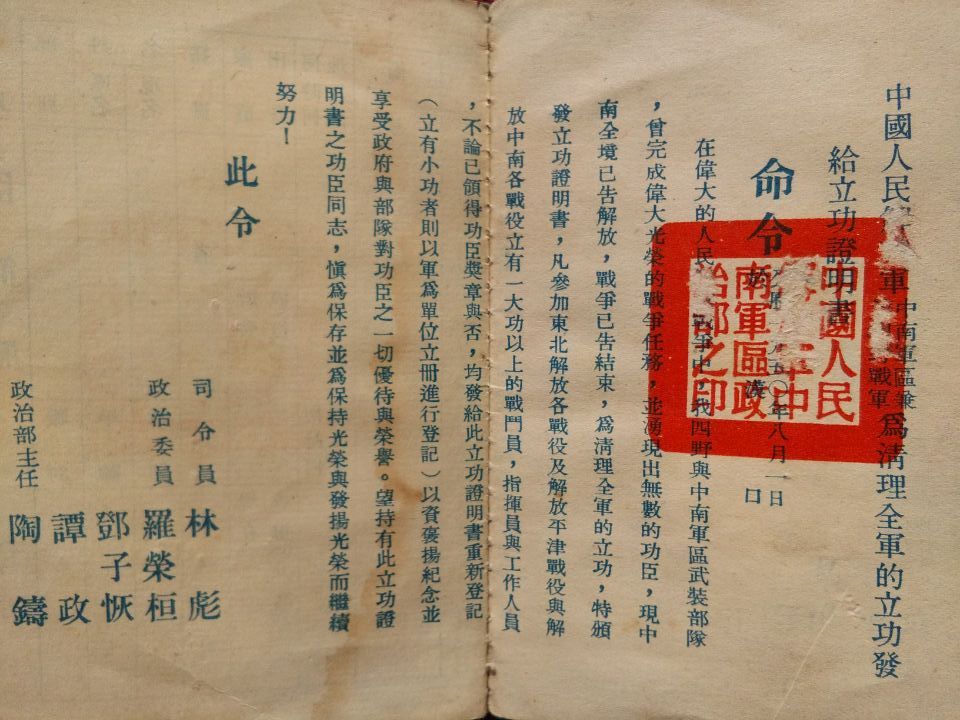 中國人民 軍 中南軍區兼 戰軍 爲清理全軍的立功發
給立功證明書
命令
五〇年八月一日
於 漢口
在偉大的人民 戰爭中，我四野與中南軍區武裝部隊
，曾完成偉大光榮的戰爭任務，並湧現出無數的功臣，現中
南全境已告解放，戰爭已告結束，爲清理全軍的立功，特頒
發立功證明書，凡參加東北解放各戰役及解放平津戰役與解
放中南各戰役立有一大功以上的戰鬥員，指揮員與工作人員
，不論已領得功臣獎章與否，均發給此立功證明書重新登記
（立有小功者則以軍爲單位立冊進行登記）以資褒揚紀念並
享受政府與部隊對功臣之一切優待與榮譽。望持有此立功證
明書之功臣同志，慎爲保存並爲保持光榮與發揚光榮而繼續
努力！
此令
司令員 林彪
政治委員 羅榮桓
鄧子恢
譚政
政治部主任 陶鑄
中國人民
軍中
南軍區政
治部之印